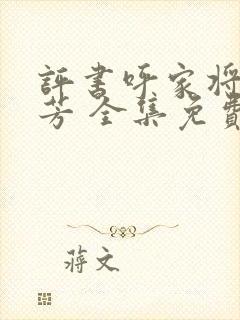 評書呼家将
芳 全集免費
蔣文